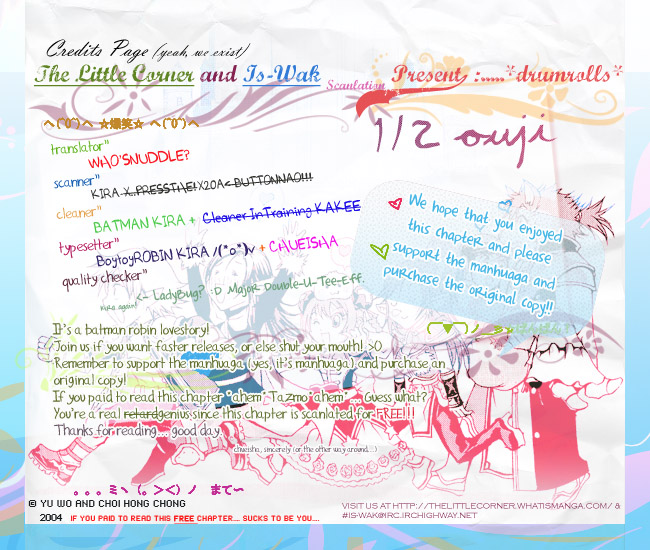 Credits Page (yeah, we exist)
The Little Corner and Is-Wak Scanlation Present, :.....*drumrolls*
ヘ(^0^)ヘ ☆爆笑☆ ヘ(^0^)ヘ
1/2 ouji
translator"
WHO'SNUDDLE?
scanner"
KIRA X..PRESSTHE! X20A< BUTTONNAO!!!
cleaner"
BATMAN KIRA + Cleaner In Training KAKEE
typesetter"
BoytoyROBIN KIRA /(*o*)v + CHUEISHA
quality checker"
kira again! <- LadyBug? :D Major Double-U-Tee-Eff.
We hope that you enjoyed
this chapter and please
support the manhuaga and
purchase the original copy!!
It's a batman robin lovestory!
Join us if you want faster releases, or else shut your mouth! >:O
Remember to support the manhuaga (yes, it's manhuaga) and purchase an
original copy!
If you paid to read this chapter *ahem* Tazmo *ahem*... Guess what?
You're a real retardgenius since this chapter is scanlated for FREE!!!
Thanks for reading... good day.
chueisha, sincerely (or the other way around...)
。。。ミヽ(。><)ノ まて~
© YU WO AND CHOI HONG CHONG
2004 IF YOU PAID TO READ THIS FREE CHAPTER... SUCKS TO BE YOU...
VISIT US AT HTTP://THELITTLECORNER.WHATISMANGA.COM/ &
#IS-WAK@IRC.IRCHIGHWAY.NET